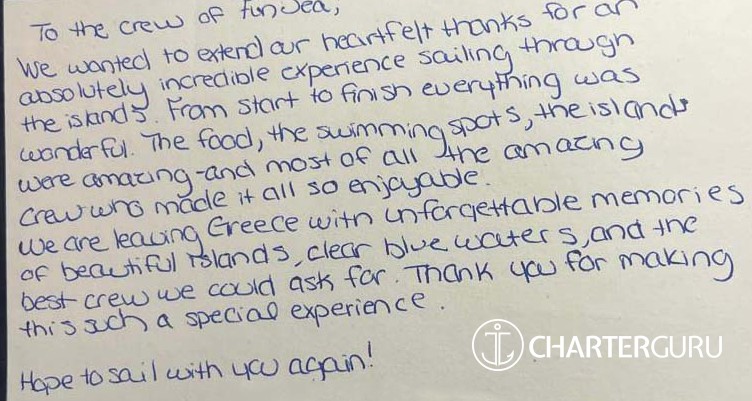 To the crew of Fun Sea,
We wanted to extend our heartfelt thanks for an
absolutely incredible experience sailing through
the islands. From start to finish everything was
wonderful. The food, the swimming spots, the islands
were amazing - and most of all the amazing
crew who made it all so enjoyable.
We are leaving Greece with unforgettable memories
of beautiful islands, clear blue waters, and the
best crew we could ask for. Thank you for making
this such a special experience.
Hope to sail with you again!
CHARTERGURU